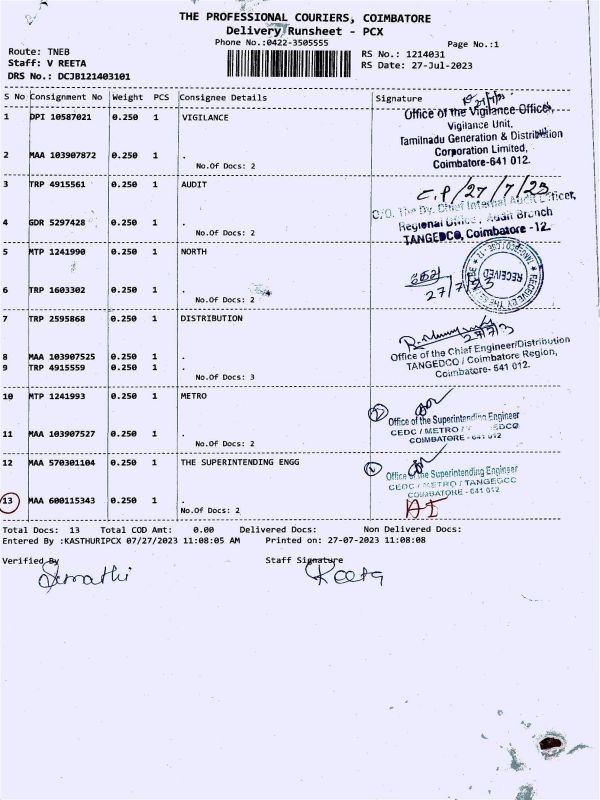 THE PROFESSIONAL COURIERS, COIMBATORE
Delivery Runsheet - PCX
Phone No.:0422-3505555
Page No.:1
Route: TNEB
RS No.: 1214031
Staff: V REETA
RS Date: 27-Jul-2023
DRS No.: DCJB121403101
S No Consignment No Weight PCS Consignee Details Signature
1 DPI 10587021 0.250 1 VIGILANCE
Office of the Vigilance Officer,
Vigilance Unit,
Tamilnadu Generation & Distribution
Corporation Limited,
Coimbatore-641 012.
2 MAA 103907872 0.250 1 .
No.Of Docs: 2
3 TRP 4915561 0.250 1 AUDIT
C.P/27/7/23
C/O. The Dy. Chief Internal Audit Officer,
Regional Office, Audit Branch
TANGEDCO, Coimbatore -12.
4 GDR 5297428 0.250 1 .
No.Of Docs: 2
5 MTP 1241990 0.250 1 NORTH
RECEIVED
27/7/23
6 TRP 1603302 0.250 1 .
No.Of Docs: 2
7 TRP 2595868 0.250 1 DISTRIBUTION
Office of the Chief Engineer/Distribution
TANGEDCO / Coimbatore Region,
Coimbatore- 641 012.
8 MAA 103907525 0.250 1 .
9 TRP 4915559 0.250 1 .
No.Of Docs: 3
10 MTP 1241993 0.250 1 METRO
Office of the Superintending Engineer
CEDC / METRO /
COIMBATORE - 641 012
11 MAA 103907527 0.250 1 .
No.Of Docs: 2
12 MAA 570301104 0.250 1 THE SUPERINTENDING ENGG
Office of the Superintending Engineer
CEDC / METRO / TANGEDCO
COIMBATORE - 641 012
13 MAA 600115343 0.250 1 .
No.Of Docs: 2
Total Docs: 13 Total COD Amt: 0.00 Delivered Docs: Non Delivered Docs:
Entered By :KASTHURIPCX 07/27/2023 11:08:05 AM Printed on: 27-07-2023 11:08:08
Verified By Staff Signature
Reeta